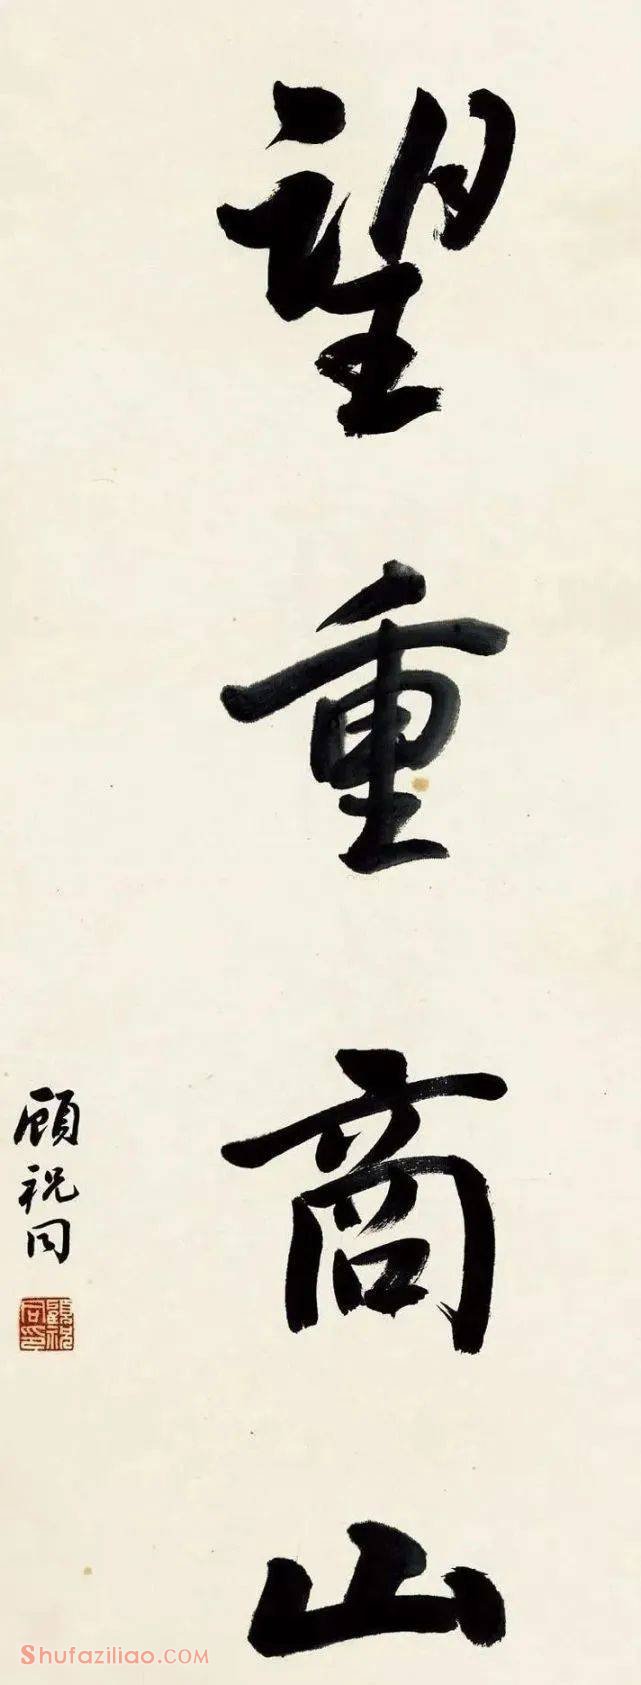 望重商山
顾祝同
顧祝同印
Shufaziliao.COM